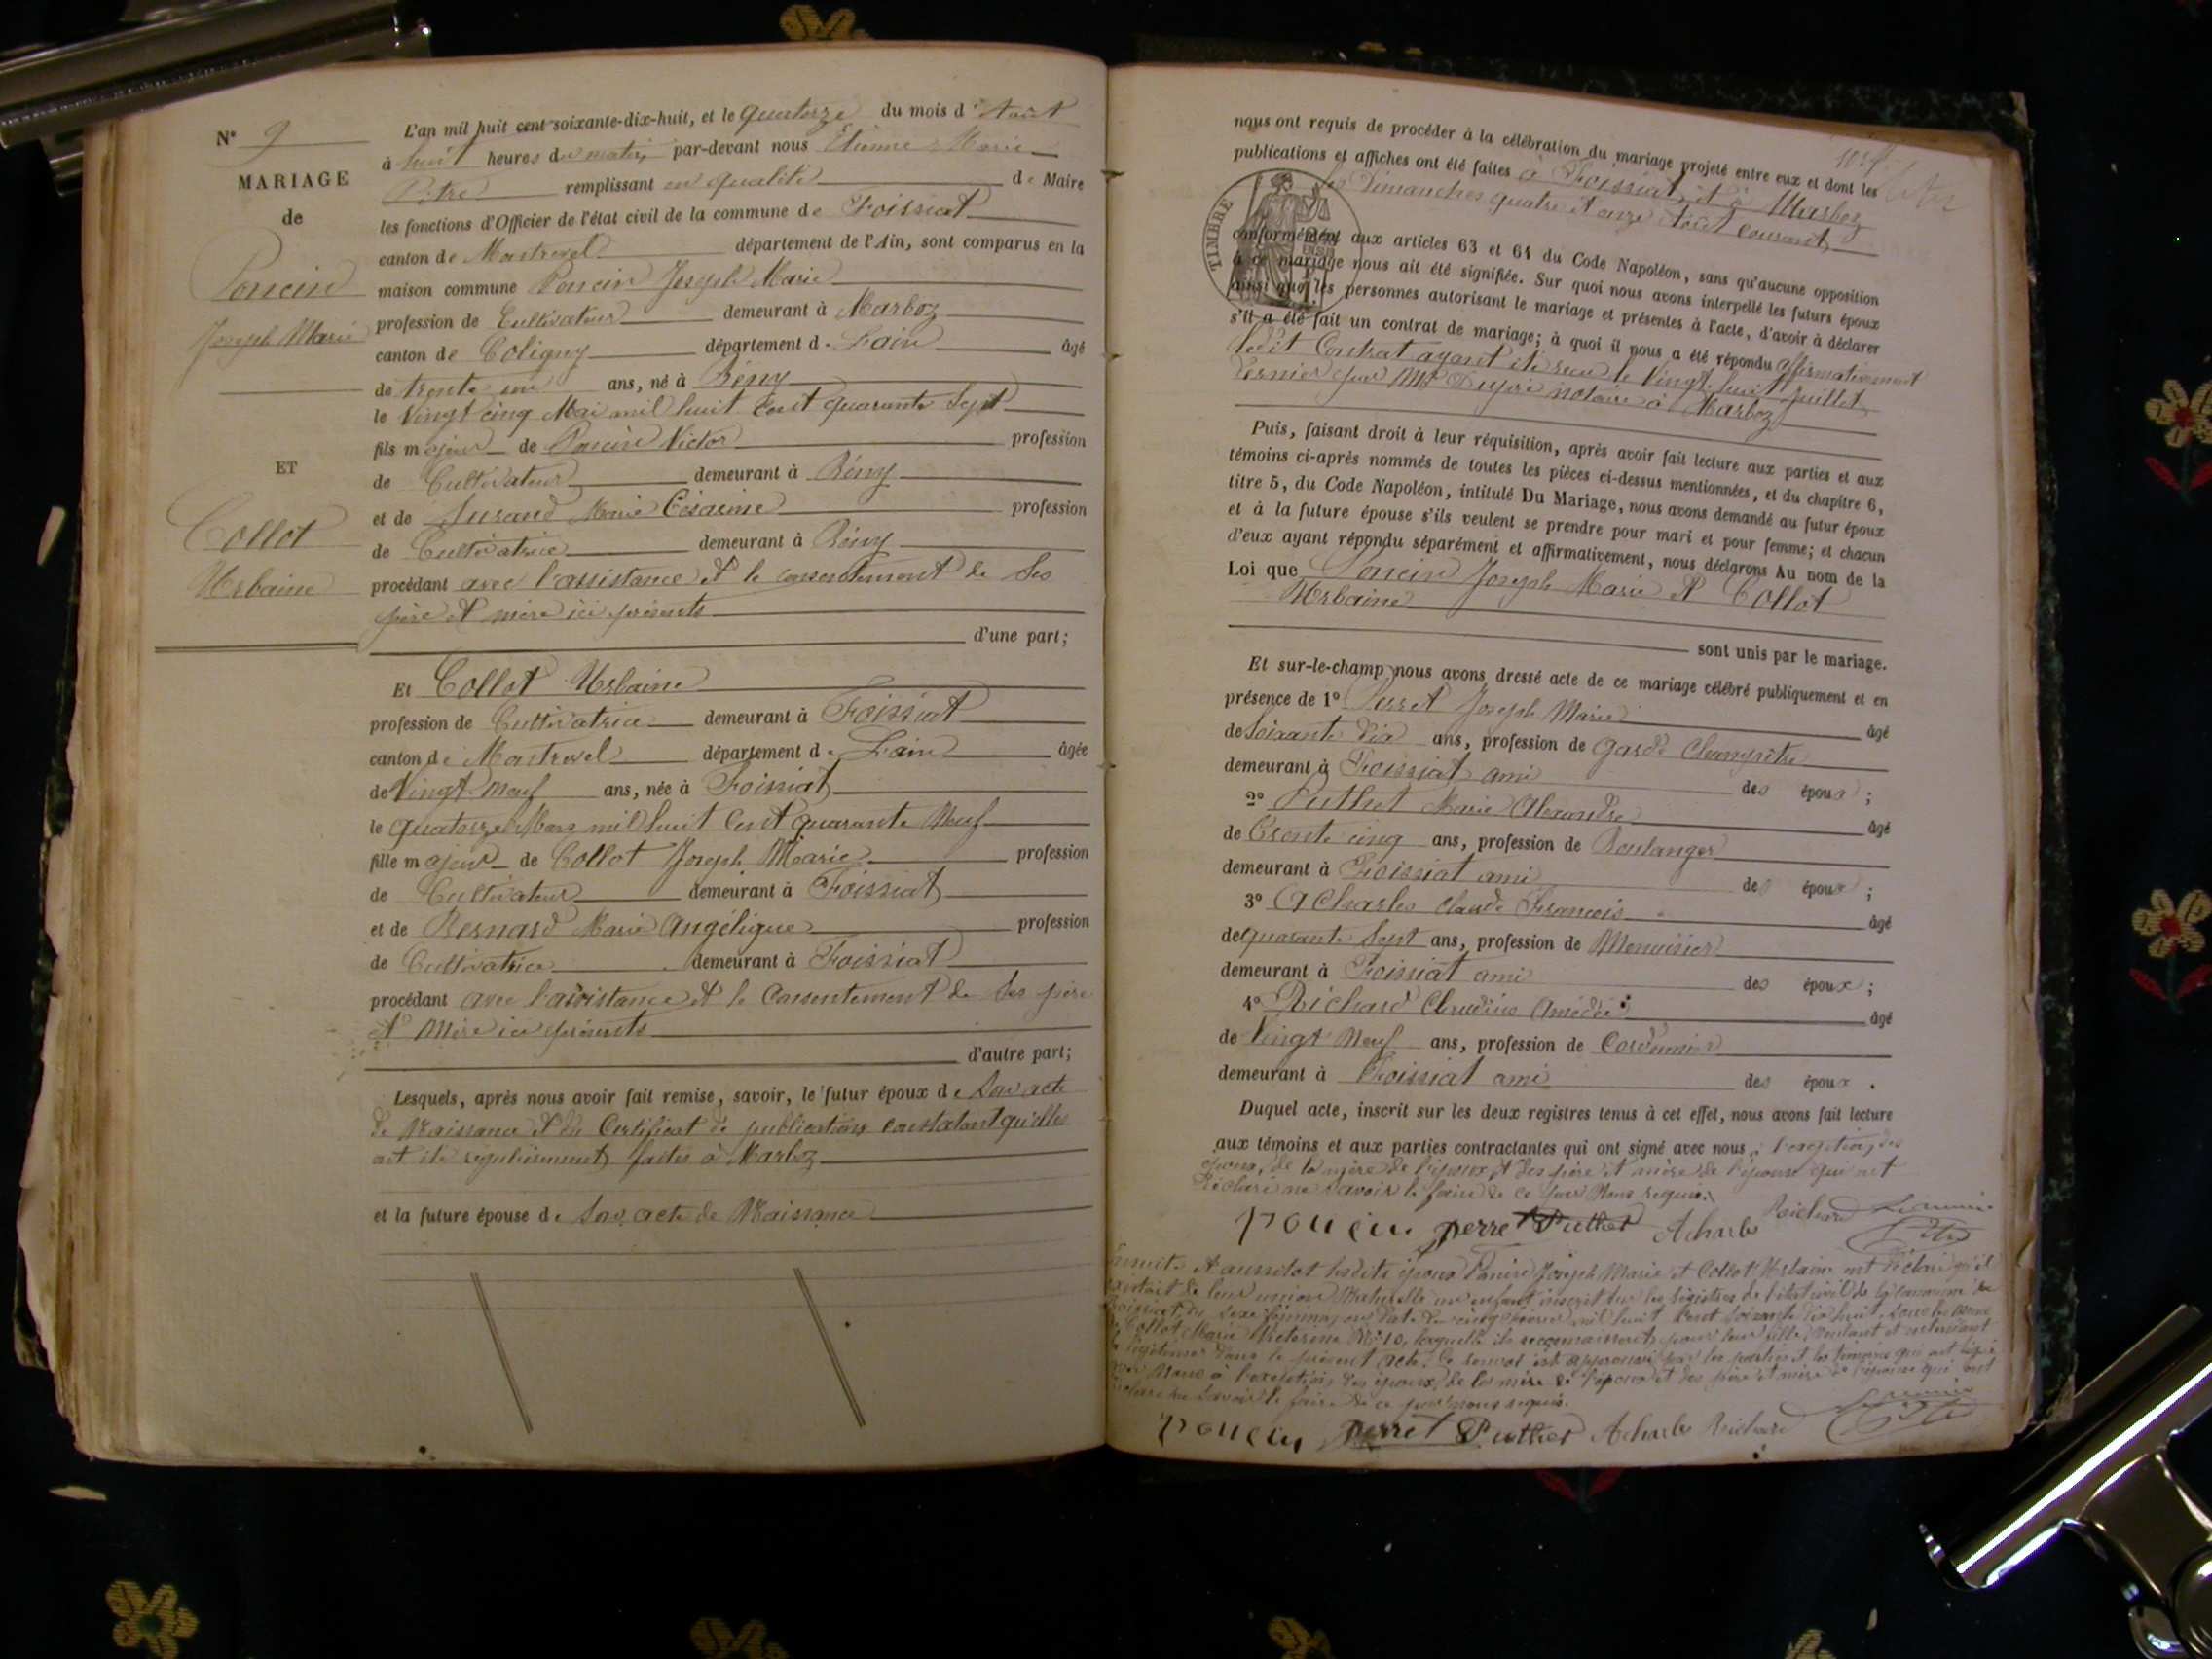 N° 9
MARIAGE
de
Poncin
Joseph Marie
ET
Collot
Urbaine
L'an mil huit cent soixante-dix-huit, et le quatorze du mois d'Août
à huit heures du matin par-devant nous Etienne Marie
remplissant en qualité de Maire
les fonctions d'Officier de l'état civil de la commune de Foissiat
canton de Montrevel département de l'Ain, sont comparus en la
maison commune Poncin Joseph Marie
profession de Cultivateur demeurant à Marboz
canton de Coligny département de Lain âgé
de trente un ans, né à Bény
le Vingt cinq Mai mil huit Cent quarante Sept
fils majeur de Poncin Victor profession
de Cultivateur demeurant à Bény
et de Marie Césarine profession
de Cultivatrice demeurant à Bény
procédant avec l'assistance et le consentement de Ses
père et mère ici présents
d'une part;
Et Collot Urbaine
profession de Cultivatrice demeurant à Foissiat
canton de Montrevel département de Lain âgée
de Vingt Neuf ans, née à Foissiat
le quatorze Mars mil huit Cent quarante Neuf
fille majeur de Collot Joseph Marie profession
de Cultivateur demeurant à Foissiat
et de Bernard Marie Angélique profession
de Cultivatrice demeurant à Foissiat
procédant avec l'assistance et le Consentement de Ses père
et Mère ici présents
d'autre part;
Lesquels, après nous avoir fait remise, savoir, le futur époux de Son acte
de Naissance et du Certificat de publications constatant qu'elles
ont été régulièrement faites à Marboz
et la future épouse de Son acte de Naissance
nous ont requis de procéder à la célébration du mariage projeté entre eux et dont les
publications et affiches ont été faites à Foissiat et à Marboz
les Dimanches quatre et onze Août courant
TIMBRE
conformément aux articles 63 et 64 du Code Napoléon, sans qu'aucune opposition
à ce mariage nous ait été signifiée. Sur quoi nous avons interpellé les futurs époux
ainsi que les personnes autorisant le mariage et présentes à l'acte, d'avoir à déclarer
s'il a été fait un contrat de mariage; à quoi il nous a été répondu affirmativement
ledit Contrat ayant été reçu le Vingt huit Juillet
dernier par Me notaire à Marboz
Puis, faisant droit à leur réquisition, après avoir fait lecture aux parties et aux
témoins ci-après nommés de toutes les pièces ci-dessus mentionnées, et du chapitre 6,
titre 5, du Code Napoléon, intitulé Du Mariage, nous avons demandé au futur époux
et à la future épouse s'ils veulent se prendre pour mari et pour femme; et chacun
d'eux ayant répondu séparément et affirmativement, nous déclarons Au nom de la
Loi que Poncin Joseph Marie et Collot
Urbaine
sont unis par le mariage.
Et sur-le-champ nous avons dressé acte de ce mariage célébré publiquement et en
présence de 1° Perret Joseph Marie âgé
de Soixante dix ans, profession de garde Champêtre
demeurant à Foissiat ami des époux ;
2° Puthet Marie Alexandre âgé
de Trente cinq ans, profession de Boulanger
demeurant à Foissiat ami des époux ;
3° Acharles Claude François âgé
de quarante Sept ans, profession de Menuisier
demeurant à Foissiat ami des époux ;
4° Richard Claudius Amédée âgé
de Vingt Neuf ans, profession de Cordonnier
demeurant à Foissiat ami des époux .
Duquel acte, inscrit sur les deux registres tenus à cet effet, nous avons fait lecture
aux témoins et aux parties contractantes qui ont signé avec nous à l'exception des
époux, de la mère de l'époux et des père et mère de l'épouse qui ont
déclaré ne savoir le faire de ce par Nous requis.
poncin perret Puthet Acharles Richard
Ensuite et aussitot lesdits époux Poncin Joseph Marie et Collot Urbaine ont déclaré qu'il
existait de leur union Naturelle un enfant inscrit sur les Registres de l'état civil de la commune de
Foissiat, du sexe féminin, en date du cinq mil huit Cent soixante dix huit, sous les noms
de Collot Marie N° 10, laquelle ils reconnaissent pour leur fille, voulant et entendant
la légitimer dans le présent acte. Ce renvoi est approuvé par les parties et les témoins qui ont signé
avec Nous à l'exception des époux, de la mère de l'époux et des père et mère de l'épouse qui ont
déclaré ne Savoir le faire de ce par nous requis.
poncin perret Puthet Acharles Richard